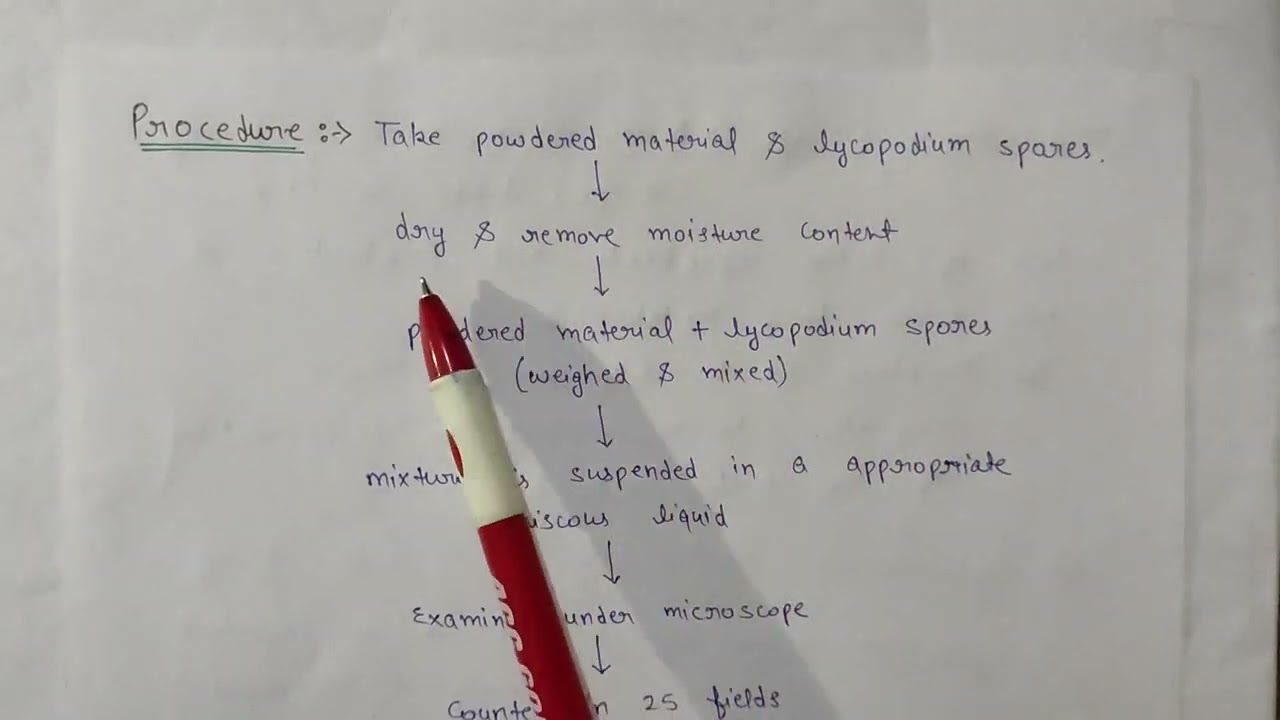 Procedure :-> Take powdered material & lycopodium spares.
↓
dry & remove moisture content
↓
material + lycopodium spores
(weighed & mixed)
↓
suspended in a appropriate
liquid
↓
under microscope
↓
25 fields